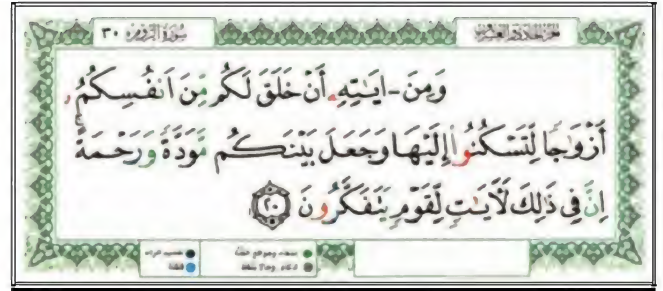 سُورَةُ الرُّومِ ٣٠
وَمِنَ -ايَـٰتِهِۦٓ أَنْ خَلَقَ لَكُم مِّنَ اَنفُسِكُمُۥٓ
أَزْوَٰجًا لِّتَسْكُنُوٓا۟ إِلَيْهَا وَجَعَلَ بَيْنَكُم مَّوَدَّةً وَرَحْمَةً
اِنَّ فِى ذَٰلِكَ لَأَيَـٰتٍ لِّقَوْمٍ يَتَفَكَّرُونَ ٢٠
قلقلة